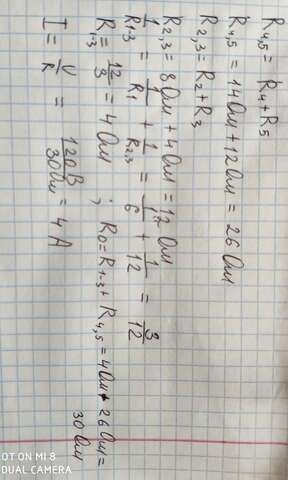 R4,5 = R4 + R5
R4,5 = 14 Ом + 12 Ом = 26 Ом
R2,3 = R2 + R3
R2,3 = 8 Ом + 4 Ом = 12 Ом
1/R1-3 = 1/R1 + 1/R2,3 = 1/6 + 1/12 = 3/12
R1-3 = 12/3 = 4 Ом ; R0 = R1-3 + R4,5 = 4 Ом + 26 Ом =
30 Ом
I = U/R = 120В/30Ом = 4 А
OT ON MI 8
DUAL CAMERA